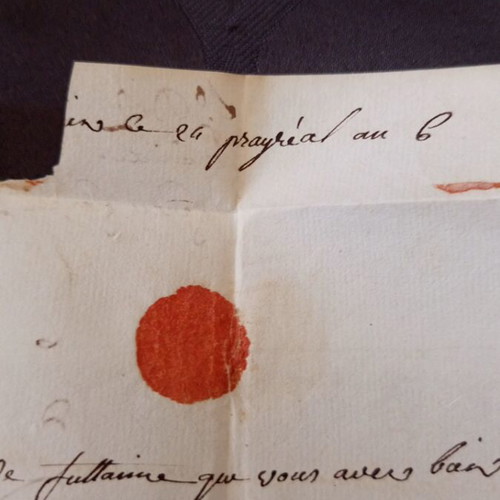 le 24 prayréal an 6
futtainne que vous avers bain